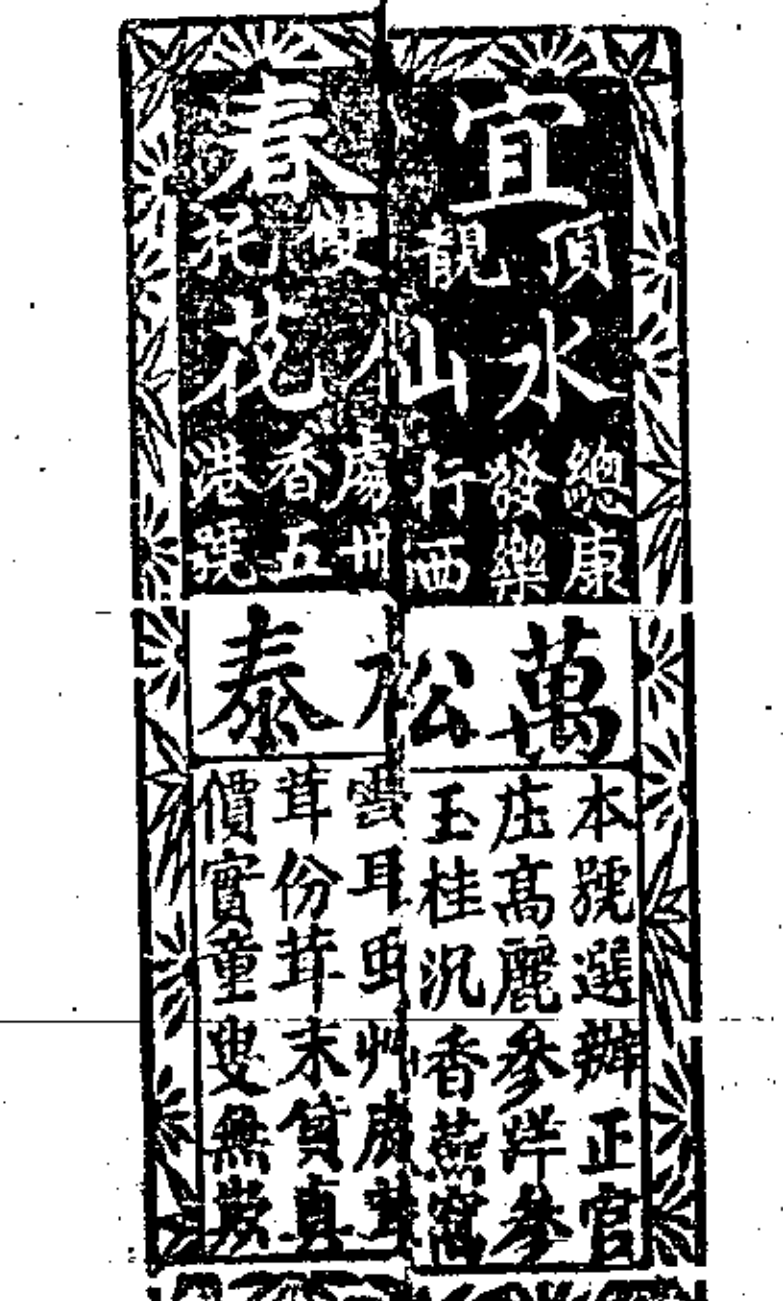 宜春
頂靚雙托
水仙花
總發行處香港
康樂西卅五號
萬松泰
本號選辦正官
庄高麗參洋參
玉桂汎香燕窩
雲耳虫艸鹿茸
茸份茸末貨真
價實童叟無欺